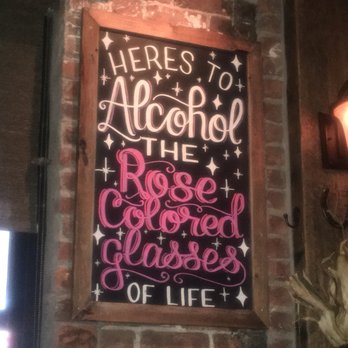 HERES TO
Alcohol
THE
Rose
Colored
glasses
OF LIFE